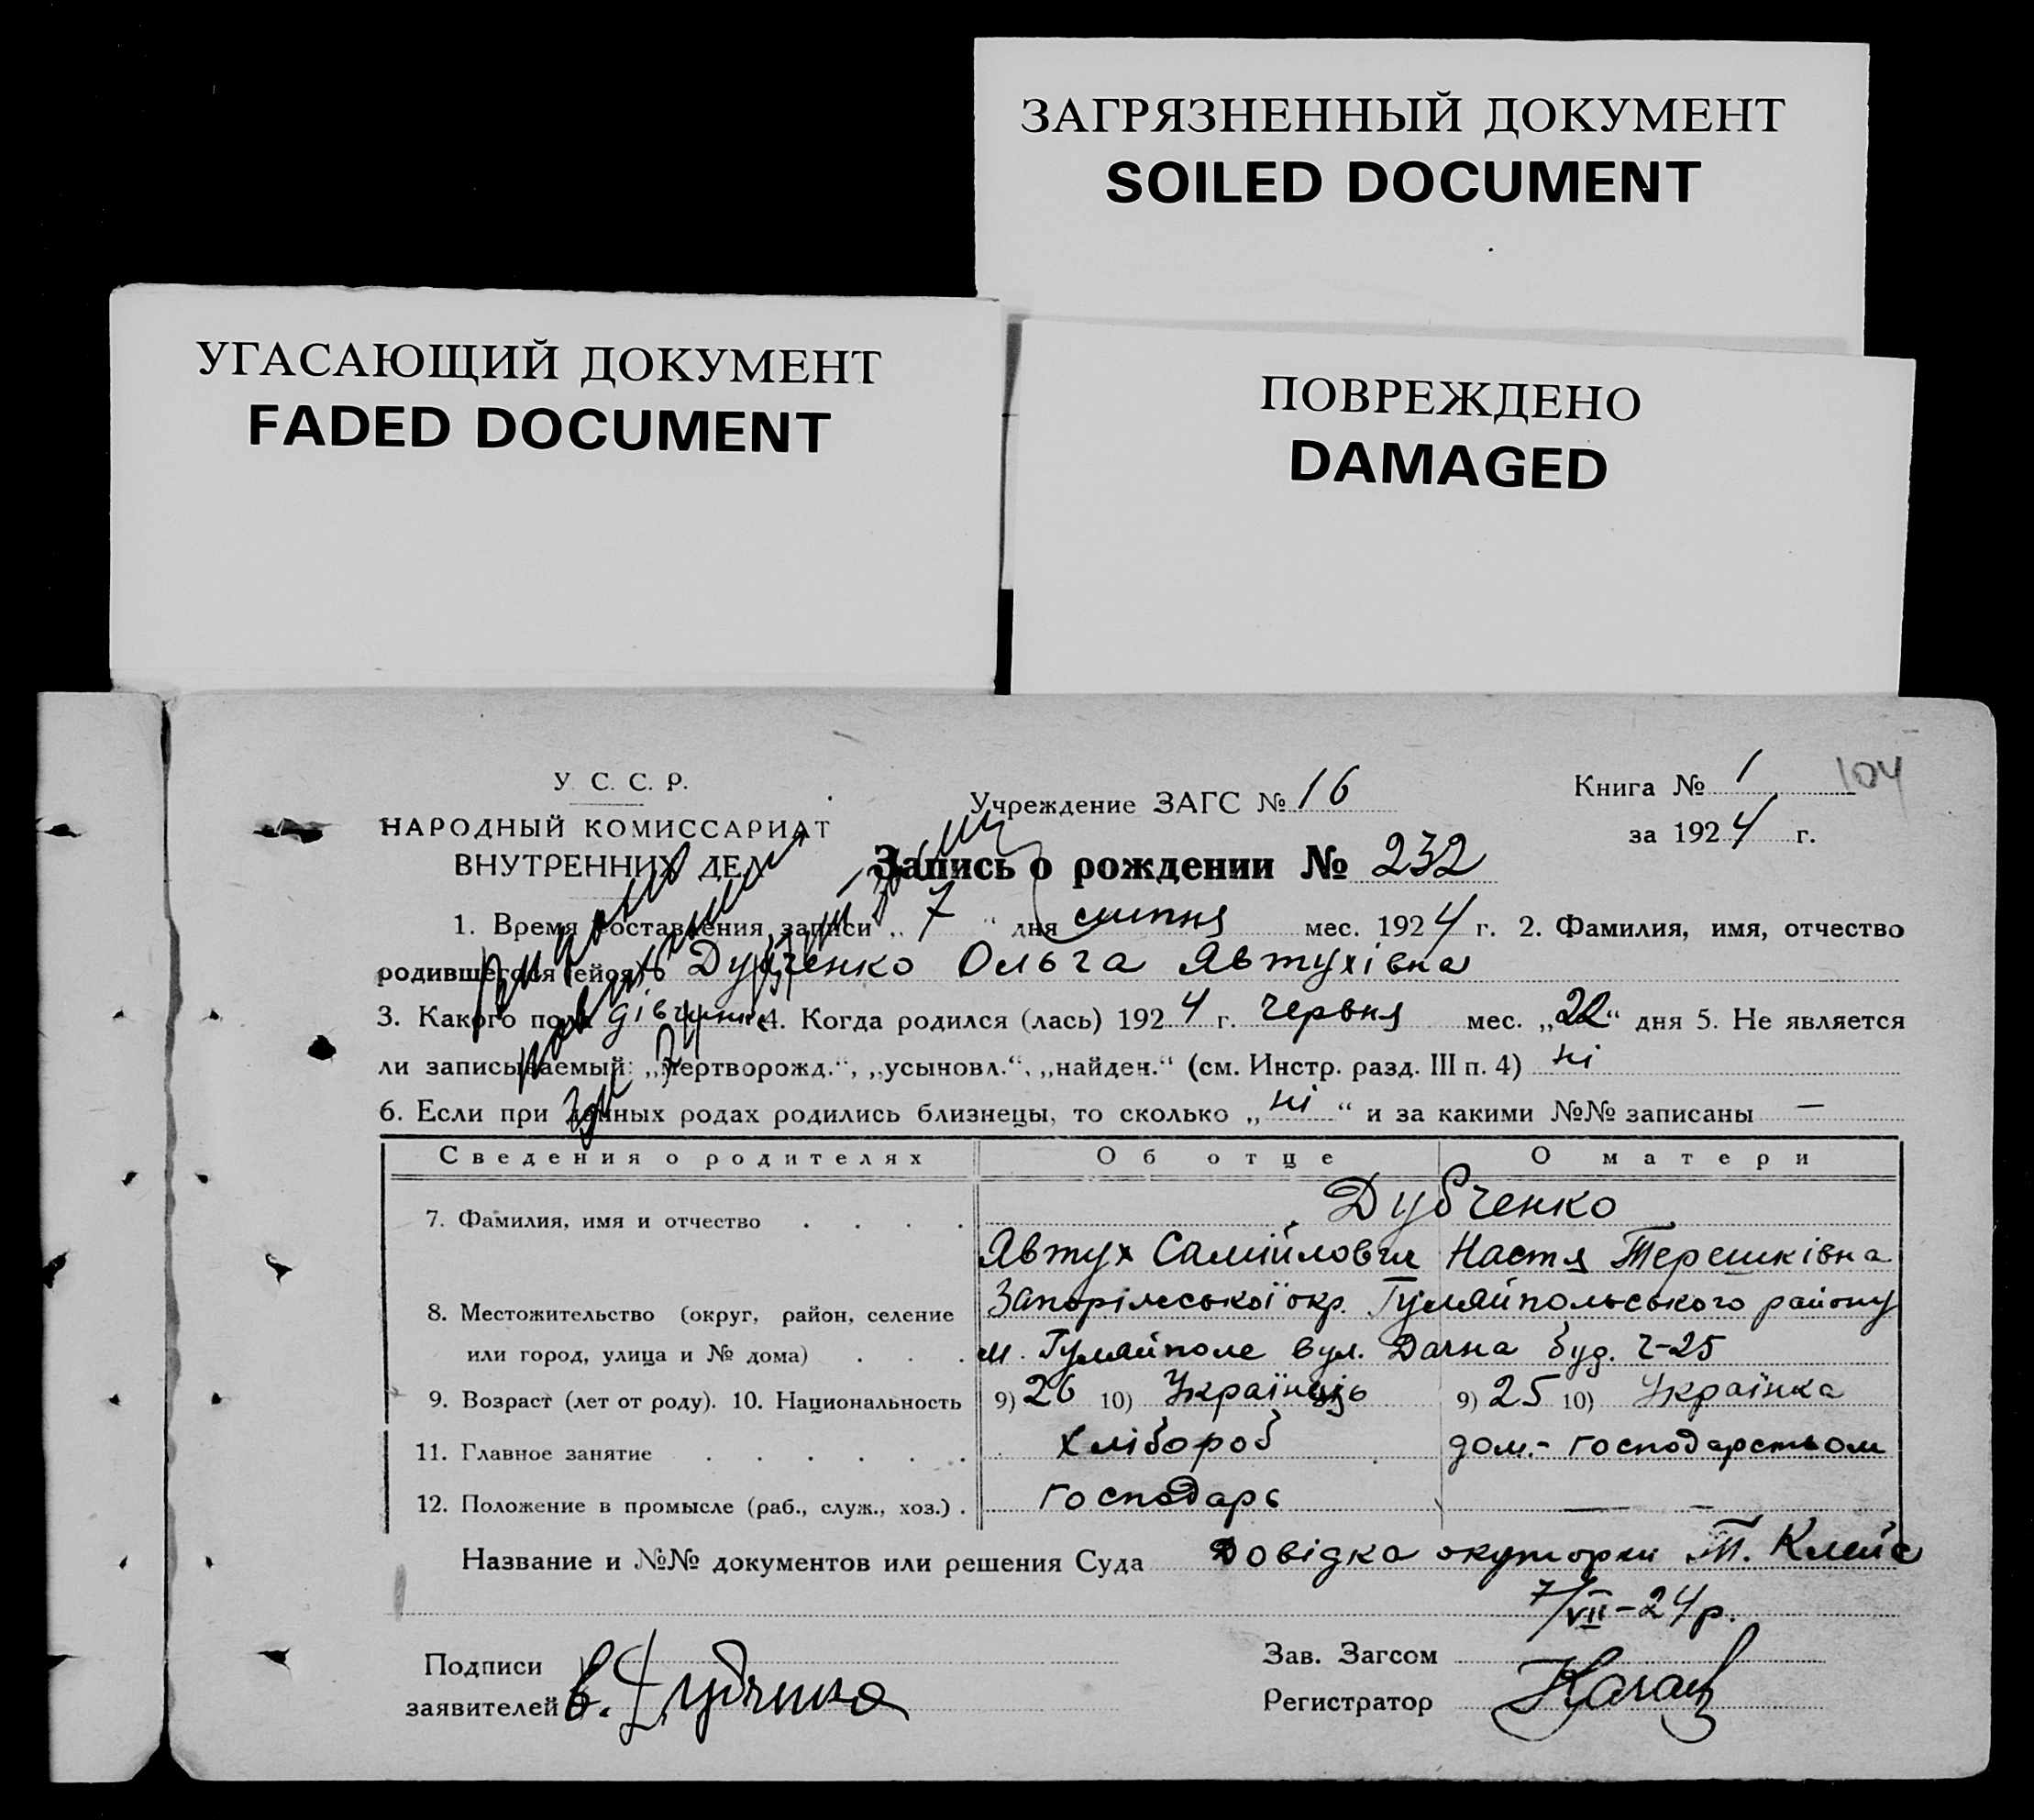 ЗАГРЯЗНЕННЫЙ ДОКУМЕНТ
SOILED DOCUMENT
УГАСАЮЩИЙ ДОКУМЕНТ
FADED DOCUMENT
ПОВРЕЖДЕНО
DAMAGED
У. С. С. Р.
НАРОДНЫЙ КОМИССАРИАТ
ВНУТРЕННИХ ДЕЛ
Учреждение ЗАГС № 16
Книга № 1
104
за 1924 г.
Запись о рождении № 232
1. Время составления записи „ 7 “ дня липня мес. 1924 г. 2. Фамилия, имя, отчество
родившегося (ейся) Дубченко Ольга Явтухівна
3. Какого пола дівчина 4. Когда родился (лась) 1924 г. червня мес. „22“ дня 5. Не является
ли записываемый: „мертворожд.“, „усыновл.“, „найден.“ (см. Инстр. разд. III п. 4) ні
6. Если при данных родах родились близнецы, то сколько „ ні “ и за какими №№ записаны —
Сведения о родителях Об отце О матери
7. Фамилия, имя и отчество . . . . Дубченко
Явтух Самійлович Настя Терешківна
8. Местожительство (округ, район, селение Запоріжської окр. Гуляйпольського району
или город, улица и № дома) . . . м. Гуляйполе вул. Дачна буд. ч-25
9. Возраст (лет от роду). 10. Национальность 9) 26 10) Українець 9) 25 10) Українка
11. Главное занятие . . . . . . Хлібороб дом.- господарством
12. Положение в промысле (раб., служ., хоз.) . господарь — —
Название и №№ документов или решения Суда Довідка окушорки Т.
7/VII-24 р.
Подписи Зав. Загсом
заявителей Дубченко Регистратор